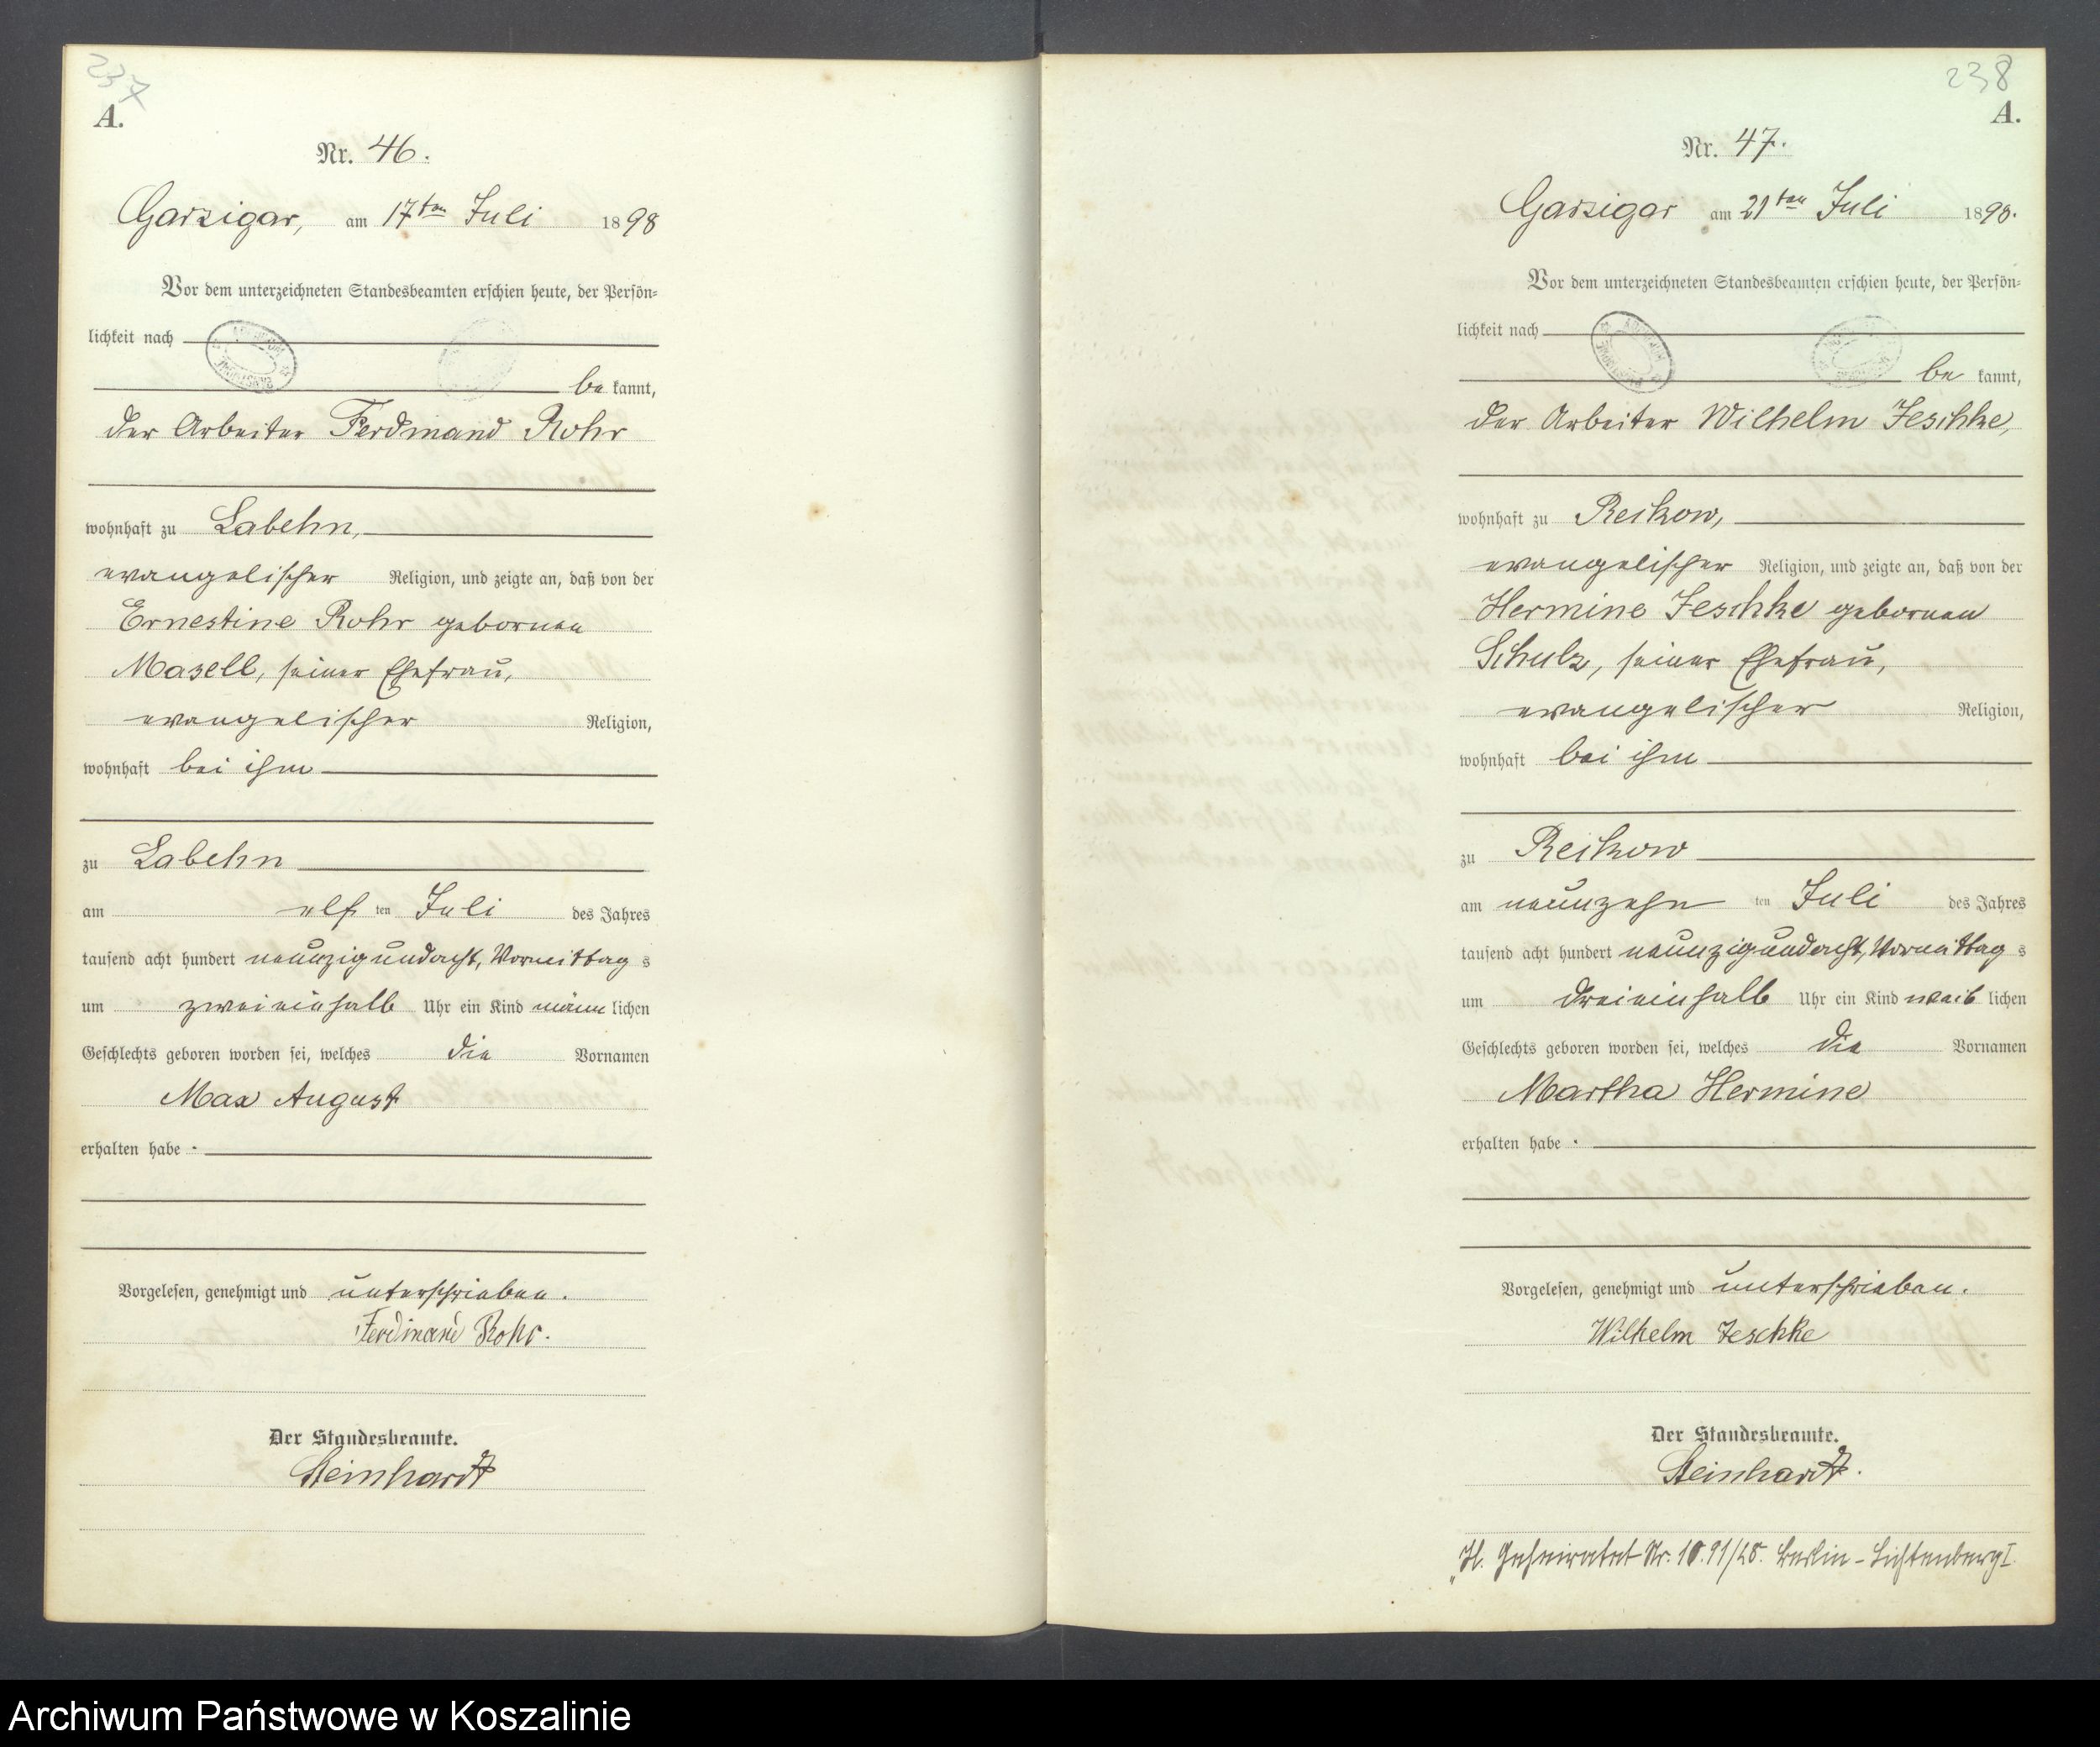 237
A.
Nr. 46.
Garzigar, am 17ten Juli 1898
Vor dem unterzeichneten Standesbeamten erschien heute, der Persön-
lichkeit nach
be kannt,
der Arbeiter Ferdinand Rohr
wohnhaft zu Labehn,
evangelischer Religion, und zeigte an, daß von der
Ernestine Rohr gebornen
Masell, seiner Ehefrau,
evangelischer Religion,
wohnhaft bei ihm
zu Labehn
am elf ten Juli des Jahres
tausend acht hundert neunzigundacht, Vormittag s
um zweieinhalb Uhr ein Kind männ lichen
Geschlechts geboren worden sei, welches die Vornamen
Max August
erhalten habe.
Vorgelesen, genehmigt und unterschrieben.
Ferdinand Rohr.
Der Standesbeamte.
Steinhardt
238
A.
Nr. 47.
Garzigar am 21ten Juli 1898.
Vor dem unterzeichneten Standesbeamten erschien heute, der Persön-
lichkeit nach
be kannt,
der Arbeiter Wilhelm Jeschke,
wohnhaft zu Reckow,
evangelischer Religion, und zeigte an, daß von der
Hermine Jeschke gebornen
Schulz, seiner Ehefrau,
evangelischer Religion,
wohnhaft bei ihm
zu Reckow
am neunzehn ten Juli des Jahres
tausend acht hundert neunzigundacht, Vormittag s
um dreieinhalb Uhr ein Kind weib lichen
Geschlechts geboren worden sei, welches die Vornamen
Martha Hermine
erhalten habe.
Vorgelesen, genehmigt und unterschrieben.
Wilhelm Jeschke
Der Standesbeamte.
Steinhardt.
Geheiratet Nr. Berlin-Lichtenberg I
Archiwum Państwowe w Koszalinie